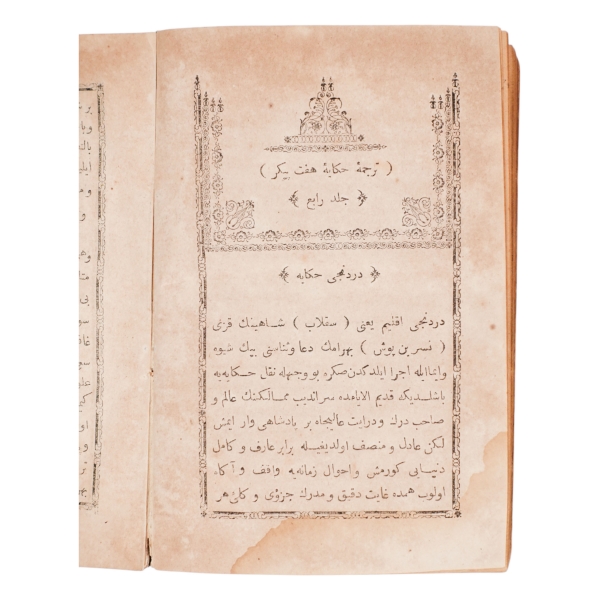 ( ترجمهٔ حكايهٔ هفت پيكر )
جلد رابع
دردنجى حكايه
دردنجى اقليم يعنى ( سقلاب ) شاهينك قزى
( نسرين پوش ) بهرامك دعا وثناسنى بيك شيوه
وانتاايله اجرا ايلدكدن صكره بو وجهله نقل حكايه يه
باشلديكه قديم الايامده سرانديب ممالكنك عالم و
صاحب درك ودرايت عاليجاه بر پادشاهى وار ايمش
لكن عادل و منصف اولديغيله برابر عارف و كامل
دنيايى كورمش و احوال زمانه يه واقف و آكاه
اولوب همده غايت دقيق و مدرك جزوى و كلئ هر